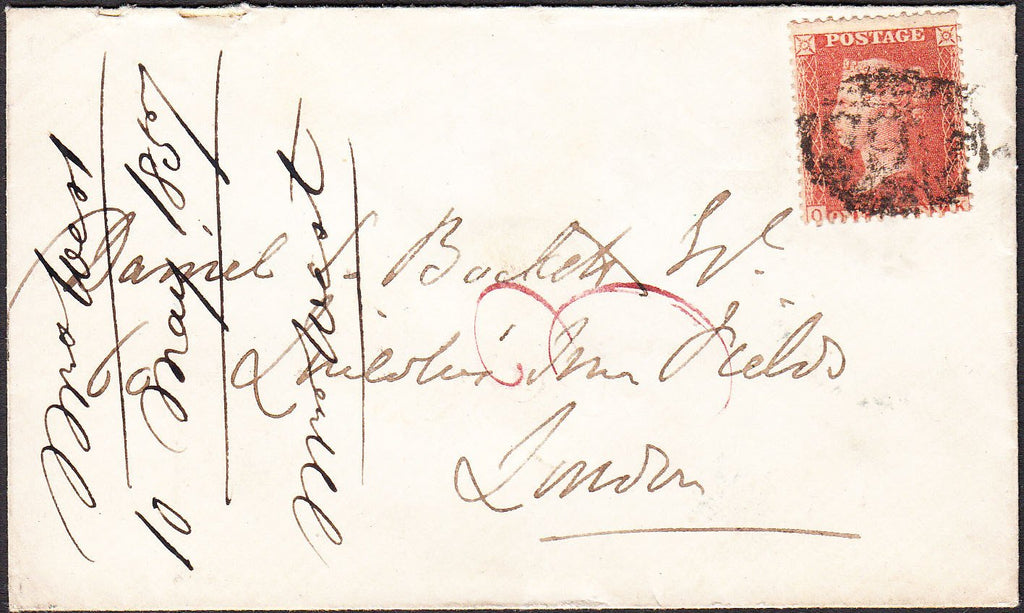 POSTAGE
Daniel S. Bockett Sr.
60 Lincoln's Inn Fields
London
Mrs West
10 May 1857
Mrs West